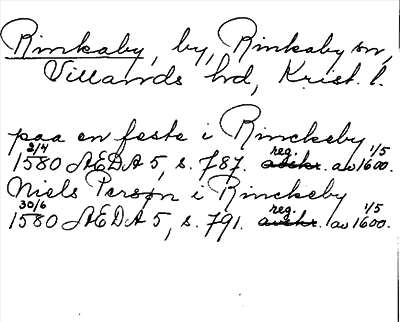 Rinkaby, by, Rinkaby sn,
Villands hd, Krist. l.
paa en feste i Rinckeby
2/4 1580 ÆDA 5, s. 787. reg. avskr. av 1/5 1600.
Niels Person i Rinckeby
30/6 1580 ÆDA 5, s. 791. reg. avskr. av 1/5 1600.